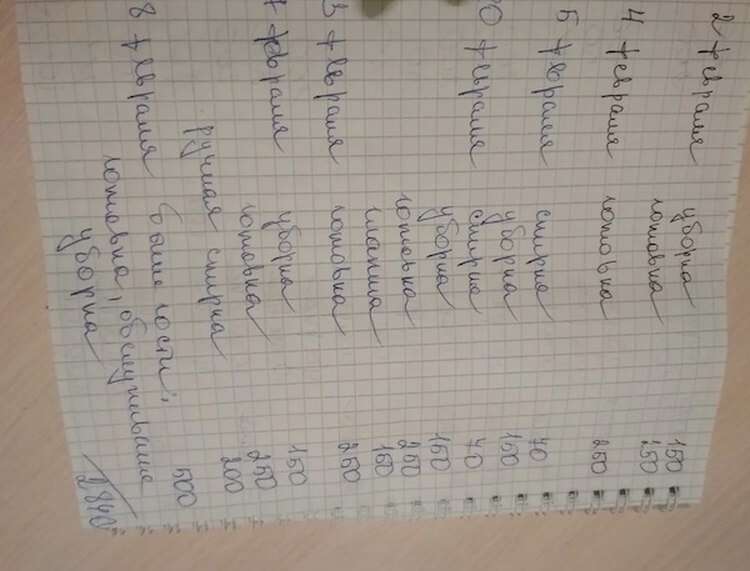 2 февраля уборка 150
готовка 250
4 февраля готовка 250
5 февраля стирка 70
уборка 150
0 февраля стирка 70
уборка 150
готовка 250
глапка 150
3 февраля готовка 250
7 февраля уборка 150
готовка 250
ручная стирка 200
8 февраля были гости, 500
готовка, обслуживала
уборка
2840